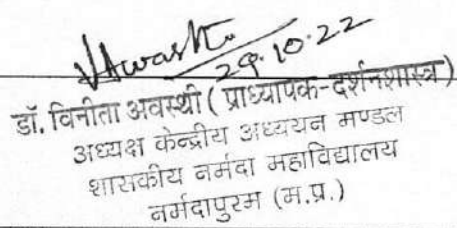 VAwasthi
29.10.22
डॉ. विनीता अवस्थी ( प्राध्यापक-दर्शनशास्त्र)
अध्यक्ष केन्द्रीय अध्ययन मण्डल
शासकीय नर्मदा महाविद्यालय
नर्मदापुरम (म.प्र.)